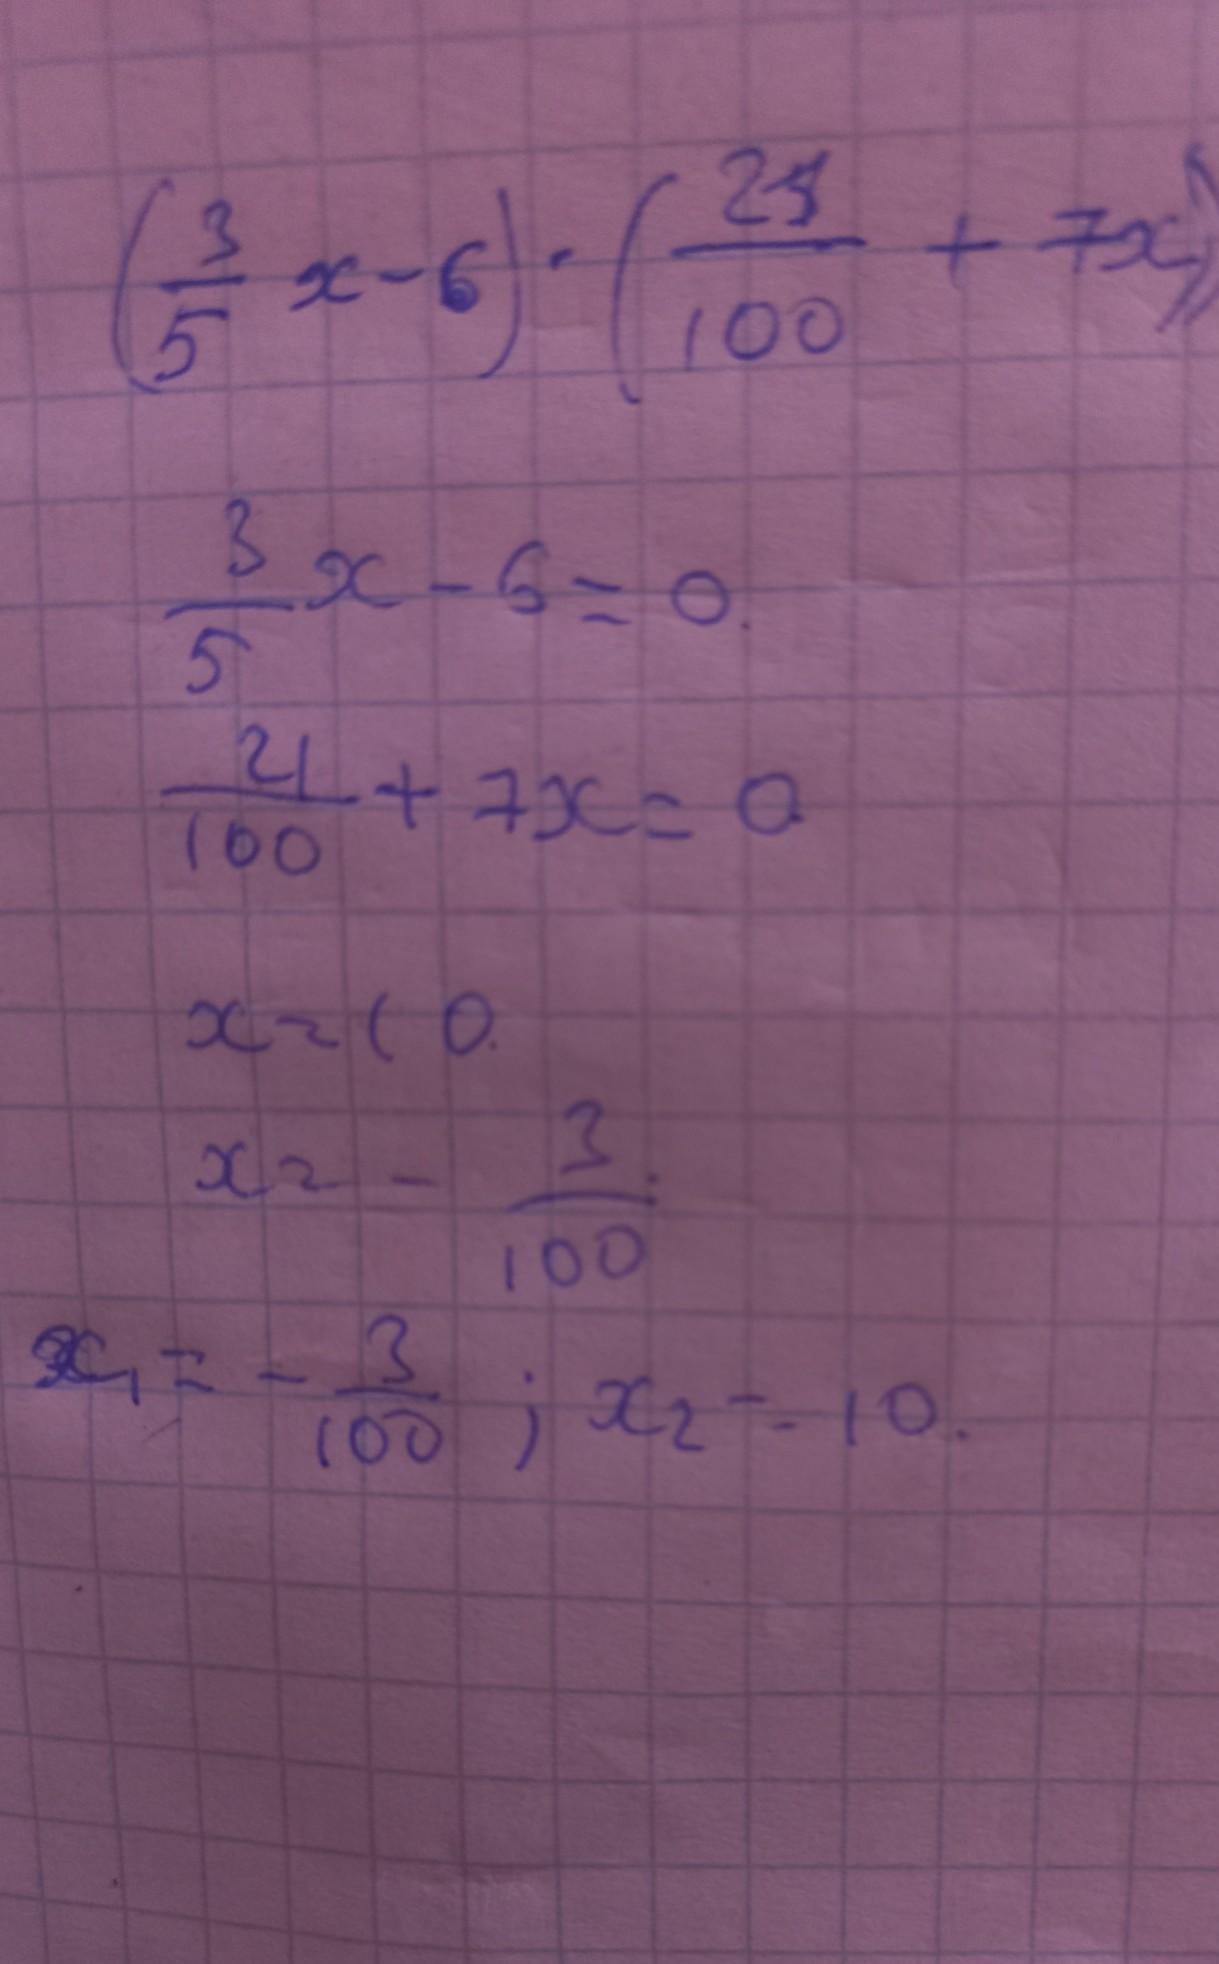 (3/5 x - 6) · (21/100 + 7x)
3/5 x - 6 = 0.
21/100 + 7x = 0
x = 10.
x = - 3/100.
x₁ = - 3/100 ; x₂ = 10.